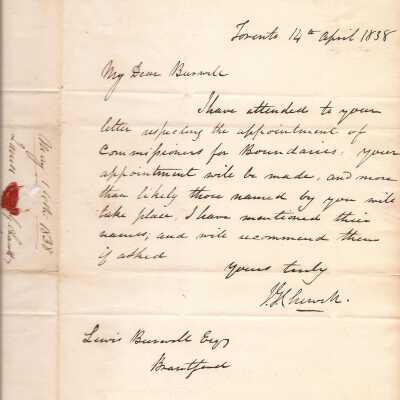 Toronto 14th April 1838
My Dear Burwell
I have attended to your
letter respecting the appointment of
Commissioners for Boundaries, your
appointment will be made, and more
than likely those named by you will
take place, I have mentioned their
names, and will recommend them
if asked
yours truly
Lewis Burwell Esqr
Brantford
1838
Lewis